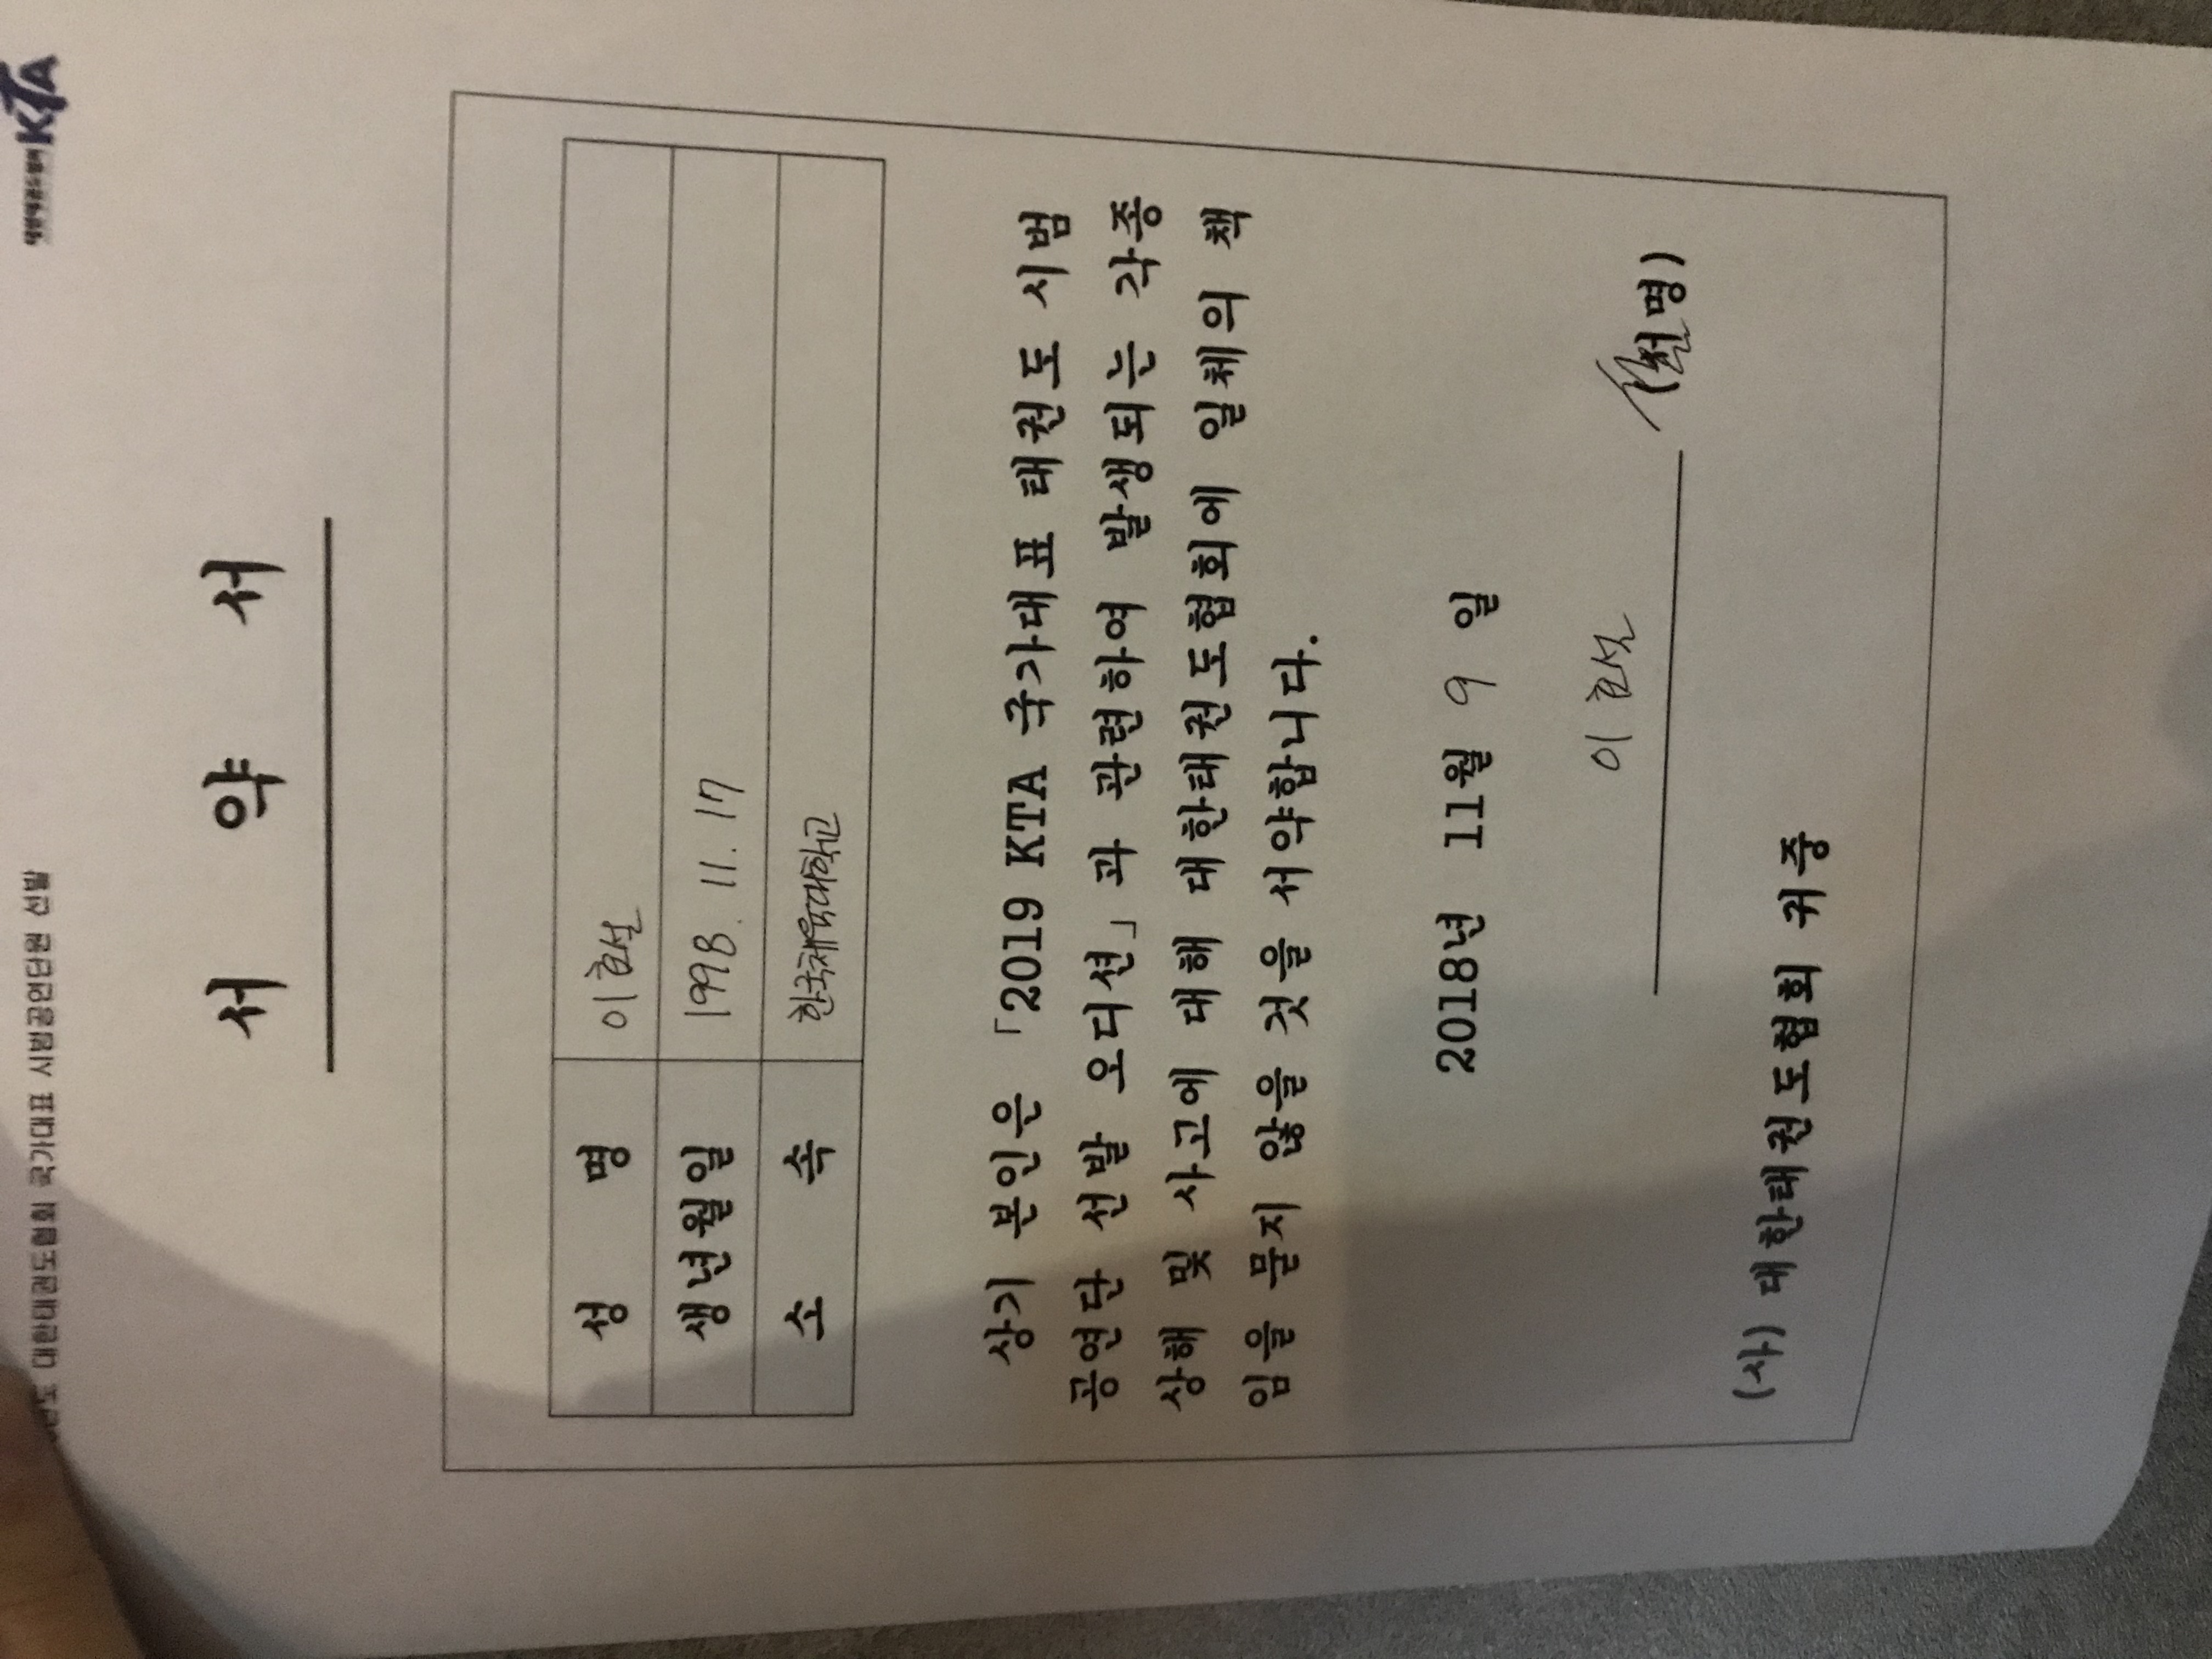 대한태권도협회 국가대표 시범공연단원 선발
대한태권도협회 KTA
서 약 서
성 명 이효설
생년월일 1998. 11. 17
소 속 한국체육대학교
상기 본인은 「2019 KTA 국가대표 태권도 시범
공연단 선발 오디션」과 관련하여 발생되는 각종
상해 및 사고에 대해 대한태권도협회에 일체의 책
임을 묻지 않을 것을 서약합니다.
2018년 11월 9 일
이효설 (서명)
(사) 대한태권도협회 귀중